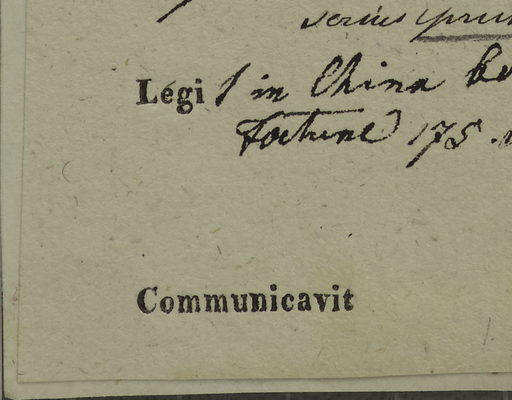 serius
Légi in China
Fortune 175
Communicavit